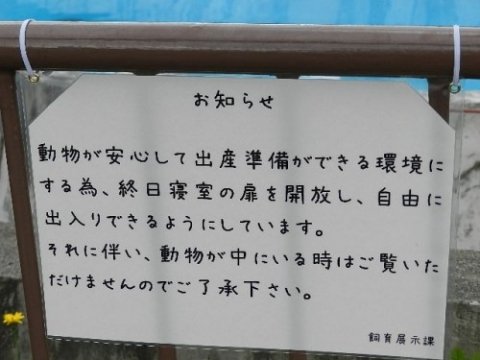 お知らせ
動物が安心して出産準備ができる環境に
する為、終日寝室の扉を開放し、自由に
出入りできるようにしています。
それに伴い、動物が中にいる時はご覧いた
だけませんのでご了承下さい。
飼育展示課